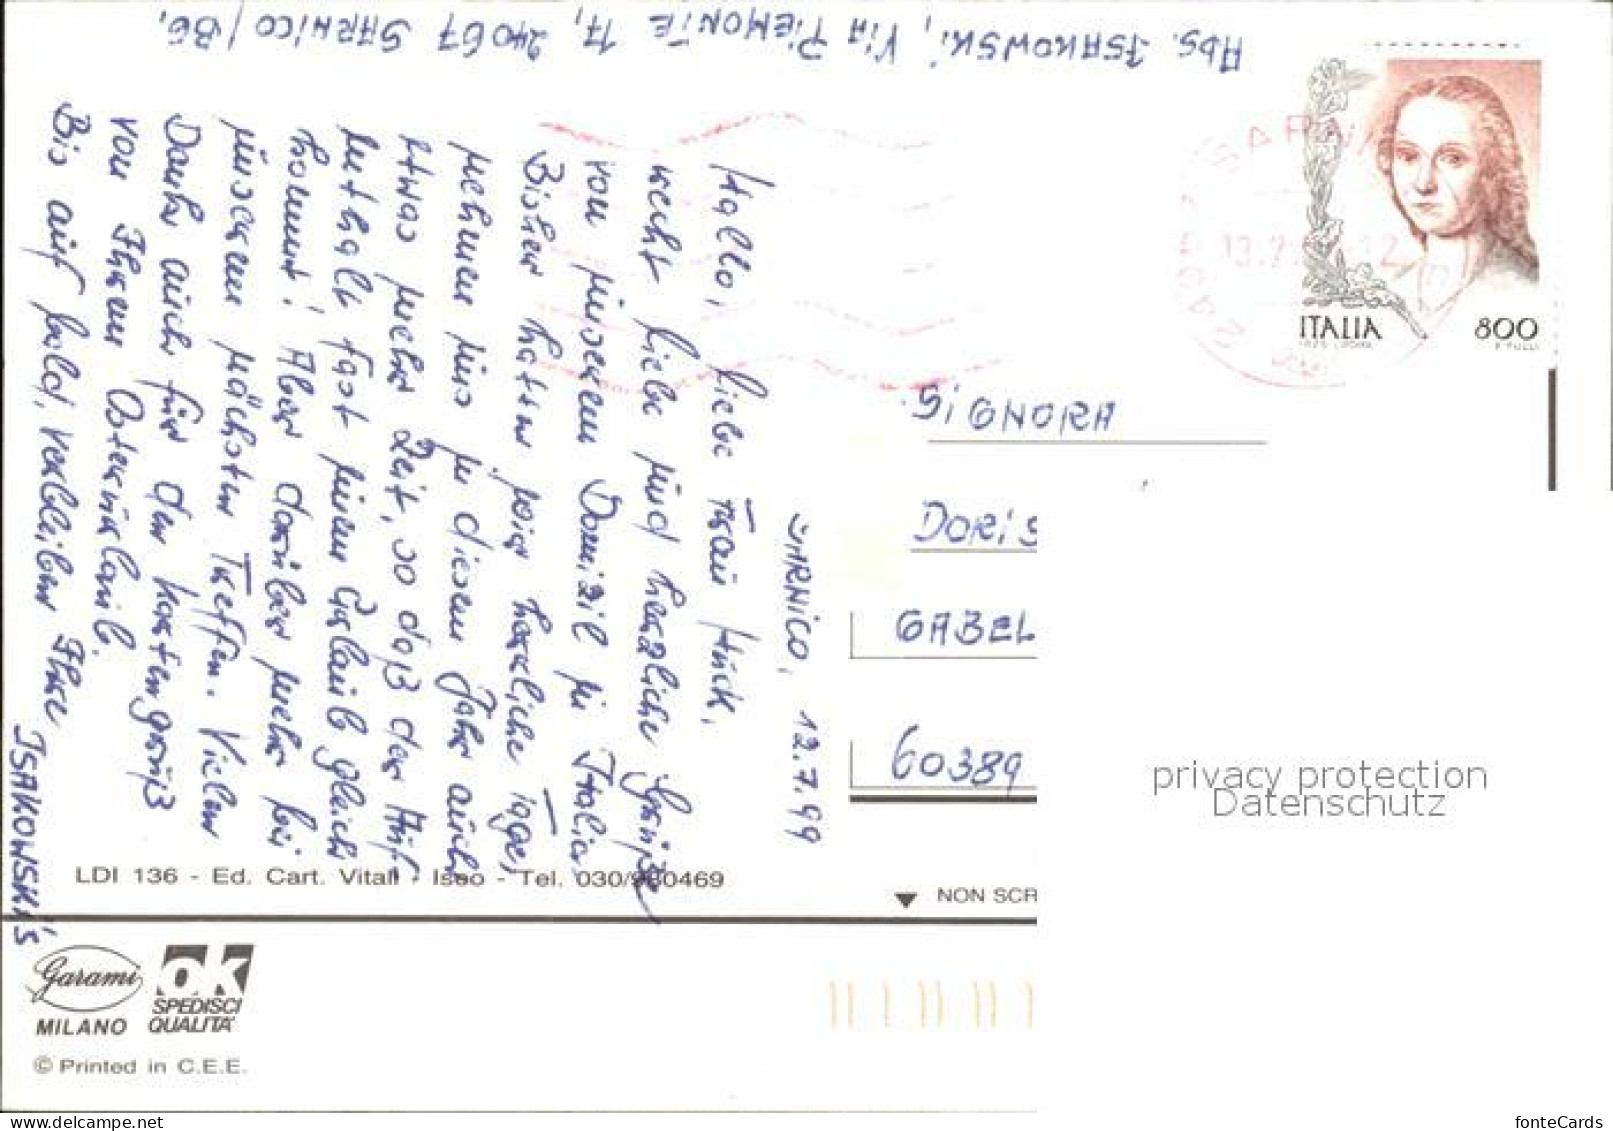 Abs. ISAKOWSKI, VIA PIEMONTE 17, 24067 SARNICO / BG.
SARNICO, 12.7.99
Hallo, liebe Frau Hück,
recht liebe und herzliche Grüße
von unserem Domizil in Italien.
Bisher hatten wir herrliche Tage,
nehmen uns in diesem Jahr auch
etwas mehr Zeit, so daß der Auf-
enthalt fast einem Urlaub gleich
kommt! Aber darüber mehr bei
unserem nächsten Treffen. Vielen
Dank auch für den Kartengruß
von Ihrem Osterurlaub.
Bis auf bald, verbleiben Ihre
ISAKOWSKI'S
ITALIA 800
SIGNORA
DORIS
GABEL
60389
privacy protection
Datenschutz
LDI 136 - Ed. Cart. Vitali - Iseo - Tel. 030/980469
NON SCR
Garami
MILANO
OK
SPEDISCI
QUALITA'
© Printed in C.E.E.
www.delcampe.net
fonteCards